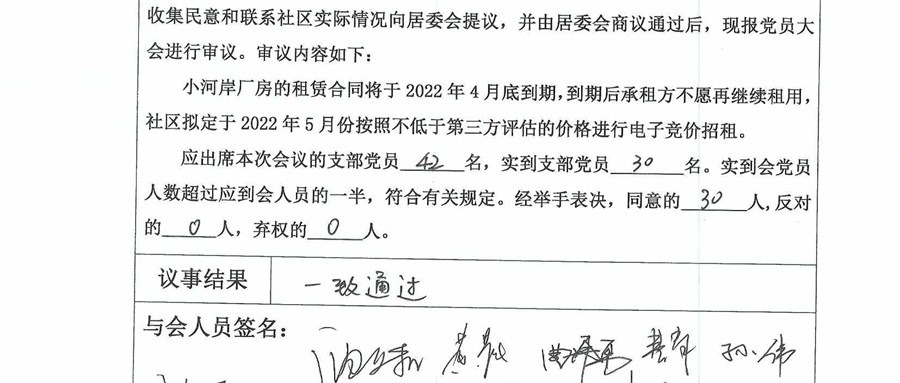 收集民意和联系社区实际情况向居委会提议，并由居委会商议通过后，现报党员大
会进行审议。审议内容如下：
小河岸厂房的租赁合同将于 2022 年 4 月底到期，到期后承租方不愿再继续租用，
社区拟定于 2022 年 5 月份按照不低于第三方评估的价格进行电子竞价招租。
应出席本次会议的支部党员 42 名，实到支部党员 30 名。实到会党员
人数超过应到会人员的一半，符合有关规定。经举手表决，同意的 30 人，反对
的 0 人，弃权的 0 人。
议事结果 一致通过
与会人员签名：